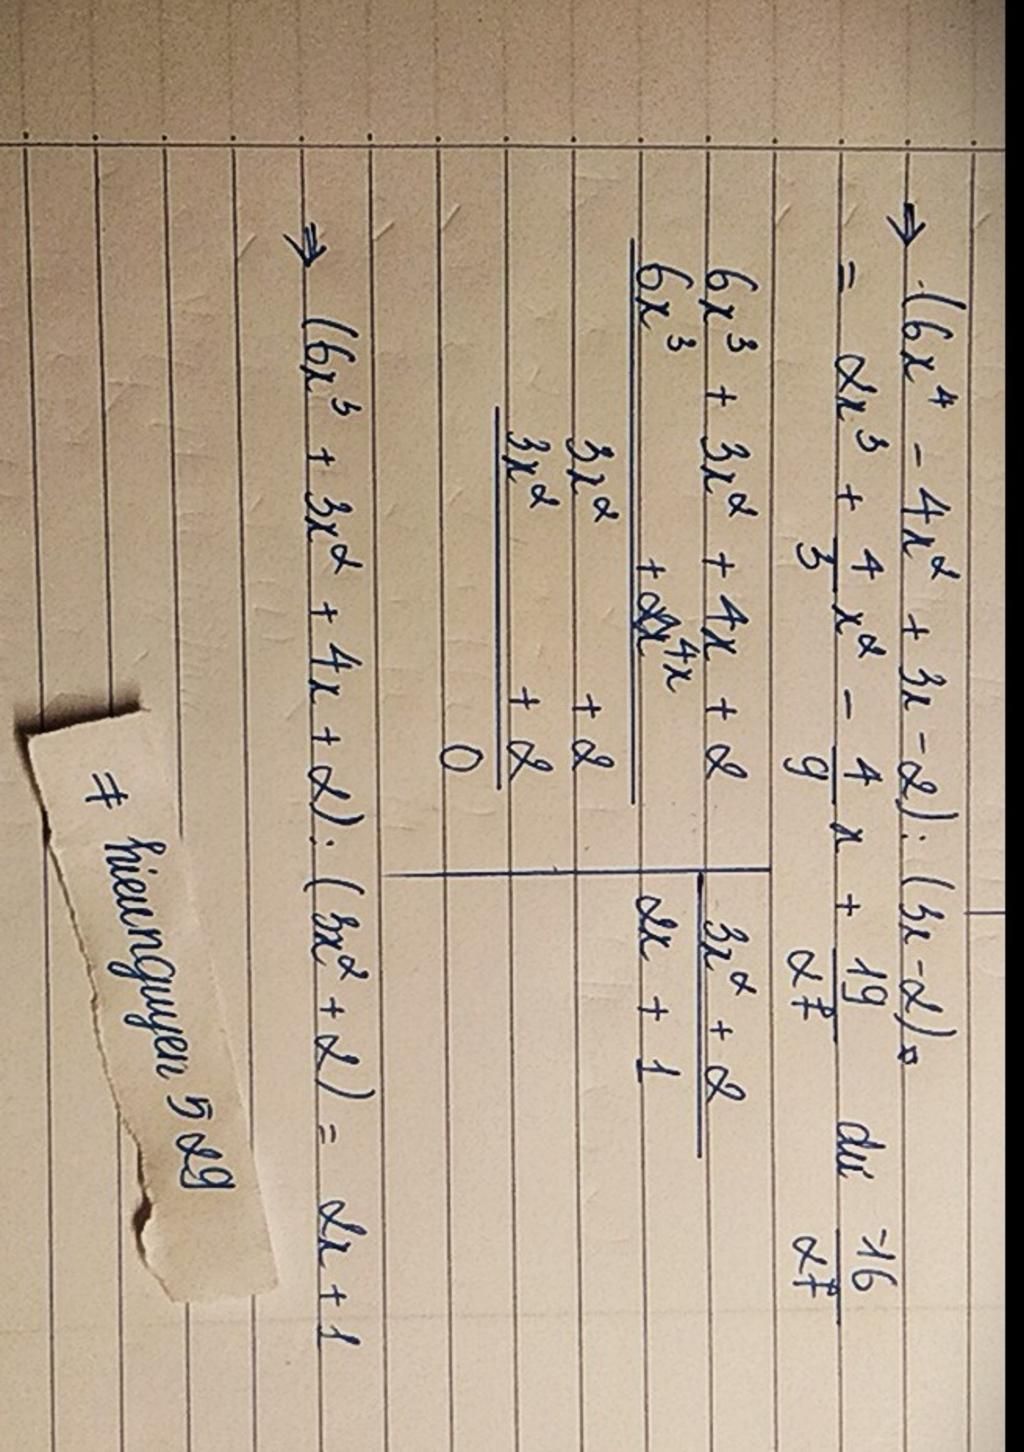 ⇒ (6x⁴ - 4x² + 3x - 2) : (3x - 2)
= 2x³ + 4/3 x² - 4/9 x + 19/27 dư -16/27
6x³ + 3x² + 4x + 2 | 3x² + 2
6x³ + 4x | 2x + 1
3x² + 2
3x² + 2
0
⇒ (6x³ + 3x² + 4x + 2) : (3x² + 2) = 2x + 1
≠ hieunguyen 529